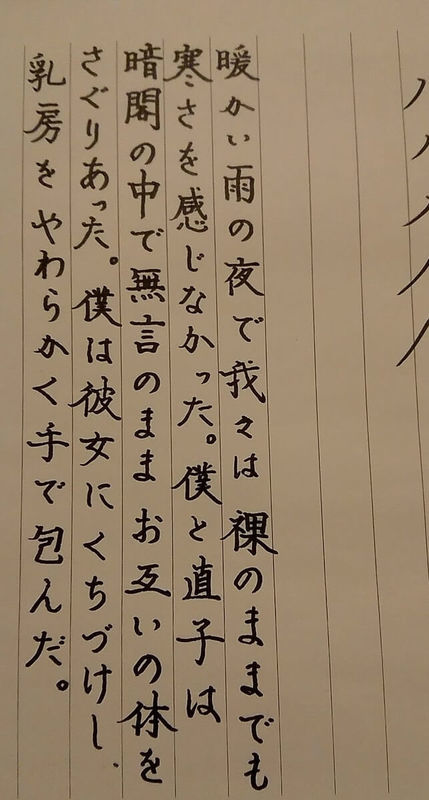 暖かい雨の夜で我々は裸のままでも
寒さを感じなかった。僕と直子は
暗闇の中で無言のままお互いの体を
さぐりあった。僕は彼女にくちづけし、
乳房をやわらかく手で包んだ。